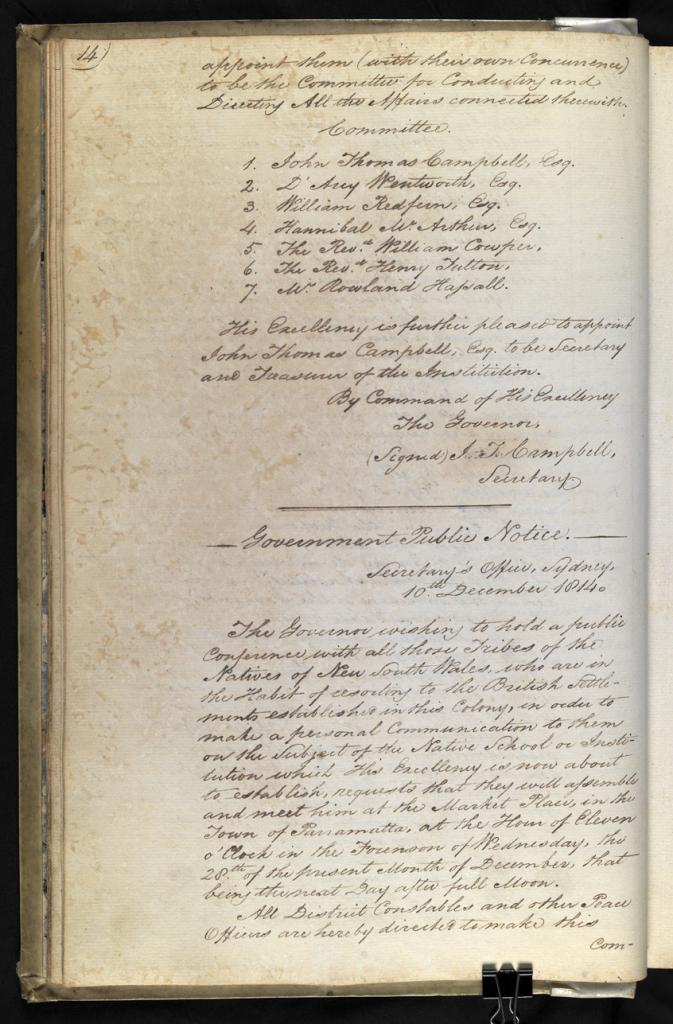 14)
appoint them (with their own Concurrence)
to be the Committee for Conducting and
Directing All the Affairs connected therewith.
Committee.
1. John Thomas Campbell, Esq.
2. D'Arcy Wentworth, Esq.
3. William Redfern, Esq.
4. Hannibal Mc.Arthur, Esq.
5. The Revd. William Cowper,
6. The Revd. Henry Fulton,
7. Mr. Rowland Hassall.
His Excellency is further pleased to appoint
John Thomas Campbell, Esq. to be Secretary
and Treasurer of the Institution.
By Command of His Excellency
The Governor,
(Signed) J. T. Campbell,
Secretary
— Government Public Notice. —
Secretary's Office, Sydney,
10th December 1814.
The Governor wishing to hold a public
Conference with all those Tribes of the
Natives of New South Wales, who are in
the Habit of resorting to the British Settle-
ments established in this Colony, in order to
make a personal Communication to them
on the Subject of the Native School or Insti-
tution which His Excellency is now about
to establish, requests that they will assemble
and meet him at the Market Place, in the
Town of Parramatta, at the Hour of Eleven
o'Clock in the Forenoon of Wednesday, the
28th of the present Month of December, that
being the next Day after full Moon.
All District Constables and other Peace
Officers are hereby directed to make this
Com-